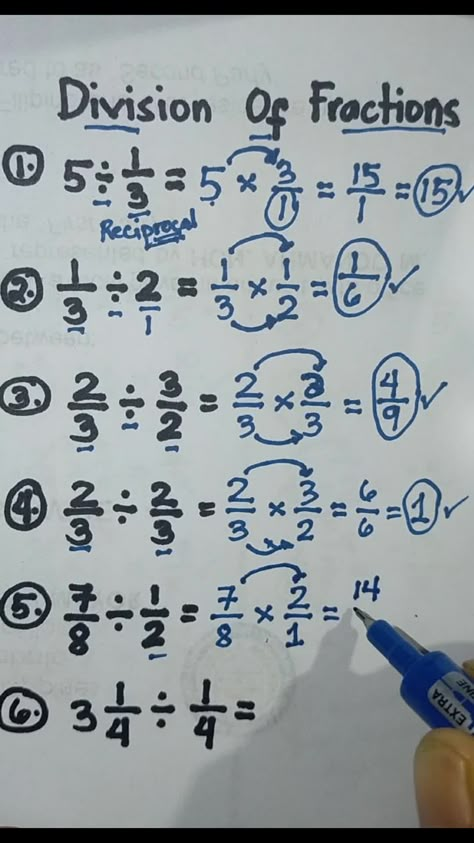 Division Of Fractions
1. 5 ÷ 1/3 = 5 × 3/1 = 15/1 = 15 ✓
Reciprocal
2. 1/3 ÷ 2/1 = 1/3 × 1/2 = 1/6 ✓
3. 2/3 ÷ 3/2 = 2/3 × 2/3 = 4/9 ✓
4. 2/3 ÷ 2/3 = 2/3 × 3/2 = 6/6 = 1 ✓
5. 7/8 ÷ 1/2 = 7/8 × 2/1 = 14
6. 3 1/4 ÷ 1/4 =
EXTRA